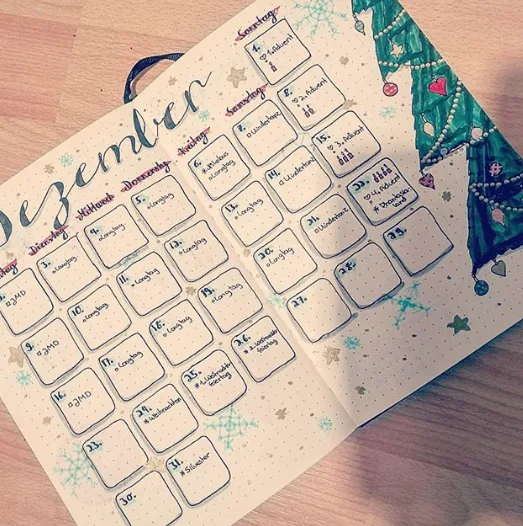 Dezember
Dienstag Mittwoch Donnerstag Freitag Samstag Sonntag
1.
♡ 1. Advent
2.
JMD
3.
Langtag
4.
Langtag
5.
Langtag
6.
Nikolaus
Langtag
7.
8.
♡ 2. Advent
9.
JMD
10.
Langtag
11.
Langtag
12.
Langtag
13.
Langtag
14.
15.
♡ 3. Advent
16.
JMD
17.
Langtag
18.
Langtag
19.
Langtag
20.
Langtag
21.
22.
♡ 4. Advent
23.
24.
* Weihnachten
25.
* 1. Weihnachts
feiertag
26.
* 2. Weihnachts
feiertag
27.
28.
29.
30.
31.
* Silvester